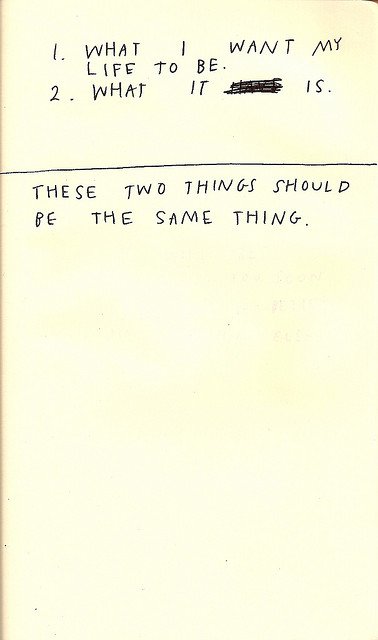 1. WHAT I WANT MY
LIFE TO BE.
2. WHAT IT IS.
THESE TWO THINGS SHOULD
BE THE SAME THING.